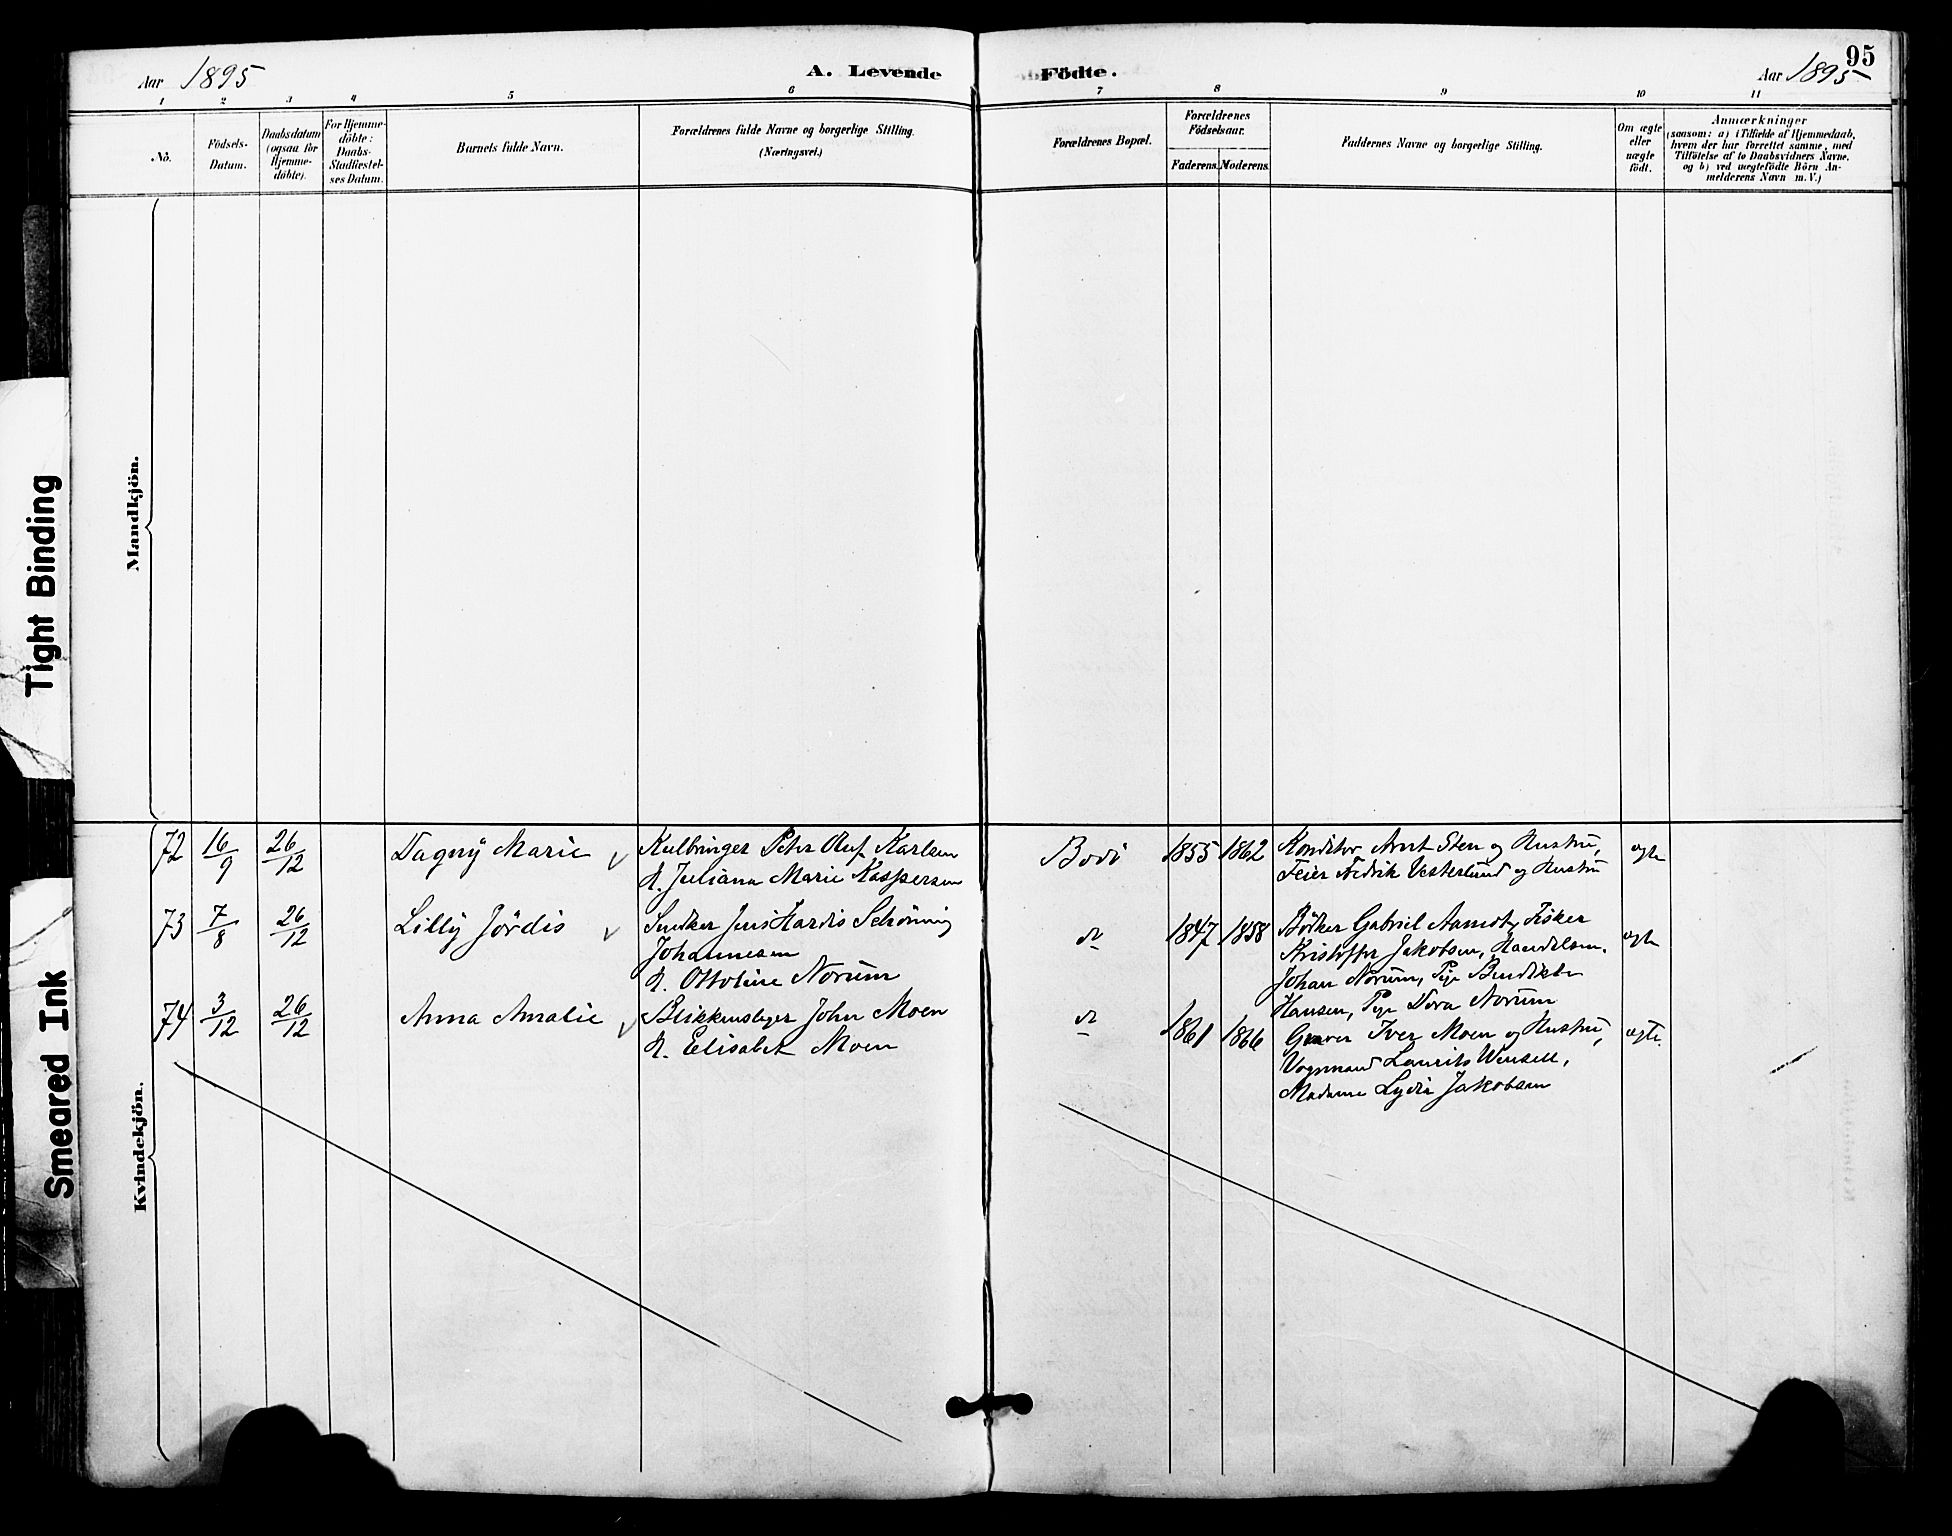 95
Aar 1895
A. Levende Födte.
Aar 1895
1 2 3 4 5 6 7 8 9 10 11
No.
Födsels-
Datum.
Daabsdatum
(ogsaa for
Hjemme-
döbte).
For Hjemme-
döbte:
Daabs-
Stadfæstel-
ses Datum.
Barnets fulde Navn.
Forældrenes fulde Navne og borgerlige Stilling.
(Næringsvei.)
Forældrenes Bopæl.
Forældrenes
Födselsaar.
Faderens. Moderens.
Faddernes Navne og borgerlige Stilling.
Om ægte
eller
uægte
födt.
Anmærkninger
(saasom: a) i Tilfælde af Hjemmedaab,
hvem der har forrettet samme, med
Tilföielse af to Daabsvidners Navne,
og b) ved uægtefödte Börn An-
melderens Navn m. V.)
Mandkjön.
Kvindekjön.
72 16/9 26/12 Dagny Marie
Peter Oluf Karlsen
H. Juliana Marie Kaspersen
Bodö 1855 1862
Konditor Arnt Sten og Hustru,
Feier Fredrik Vesterlund og Hustru
ægte
73 7/8 26/12 Lilly Jördis
Snedker Jens Hardis Schönnig
Johannesen
H. Ottoline Norum
do 1847 1858
Bödker Gabriel Arnndt, Fisker
Kristoffer Jakobsen, Handelsm.
Johan Norum, Pige Bendikte
Hansen, Pige Dora Norum
ægte
74 3/12 26/12 Anna Amalie
Blikkenslager John Moen
H. Elisabet Moen
do 1861 1866
Graver Iver Moen og Hustru,
Vognmand Laurits Wensell,
Madame Lydia Jakobsen
ægte.
Tight Binding
Smeared Ink